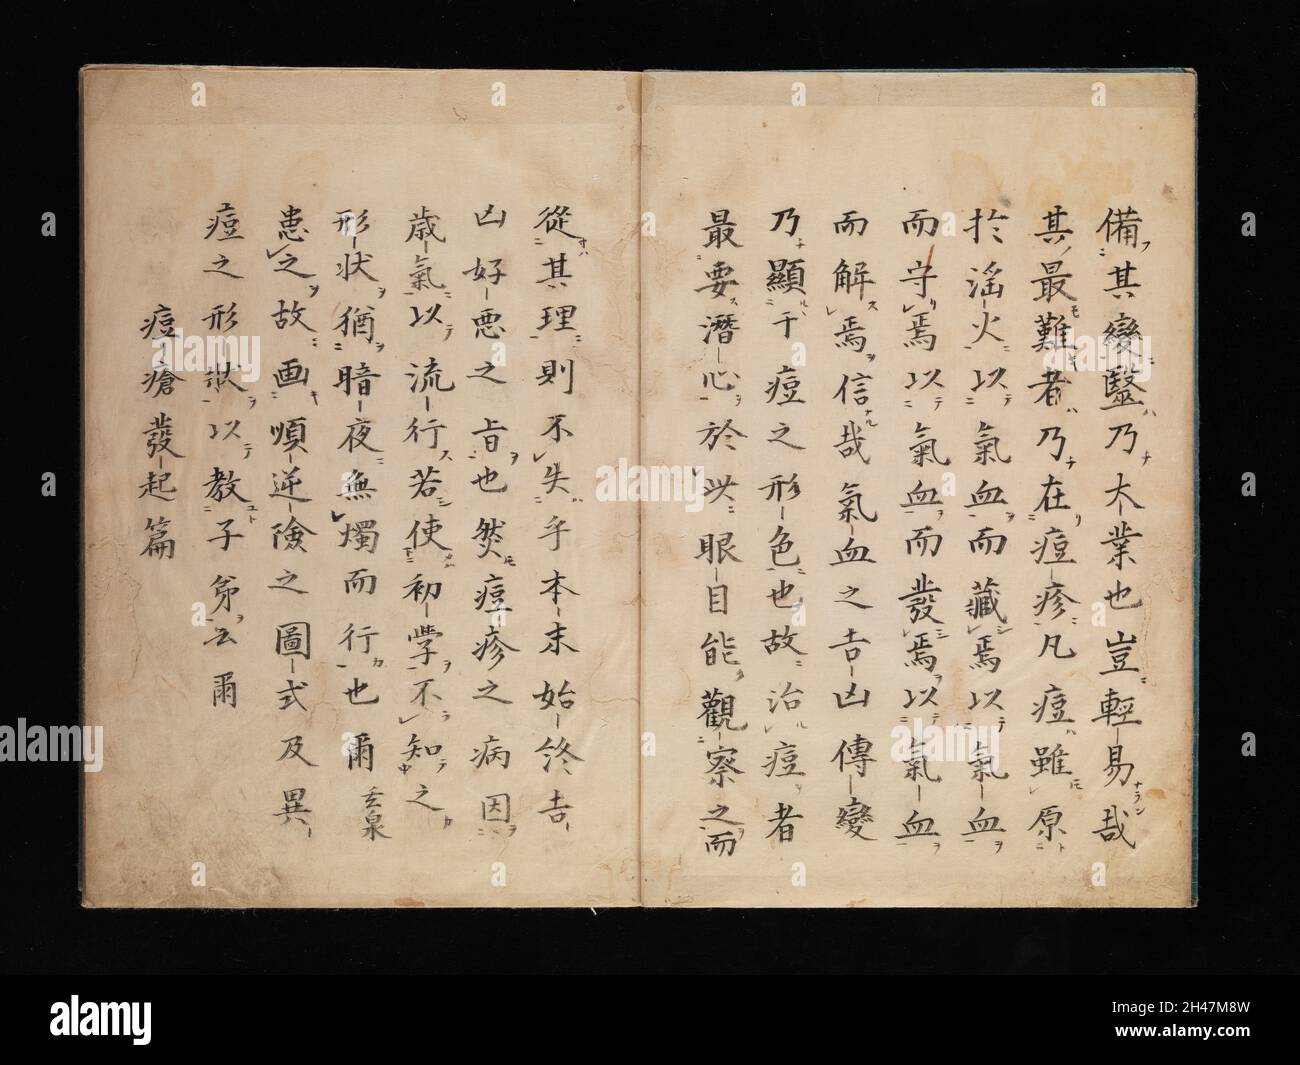 備其變醫乃大業也豈輕易哉
其最難者乃在痘疹凡痘雖原
於淫火以氣血而藏焉以氣血
而守焉以氣血而發焉以氣血
而解焉信哉氣血之吉凶傳變
乃顯于痘之形色也故治痘者
最要潛心於此眼目能觀察之而
從其理則不失乎本末始終吉
凶好惡之旨也然痘疹之病因
歲氣以流行若使初學不知之
形狀猶暗夜無燭而行也爾
患之故画順逆險之圖式及異
痘之形狀以教子弟云爾
痘瘡發起篇
a alamy
Image ID: 2H47M8W
www.alamy.com